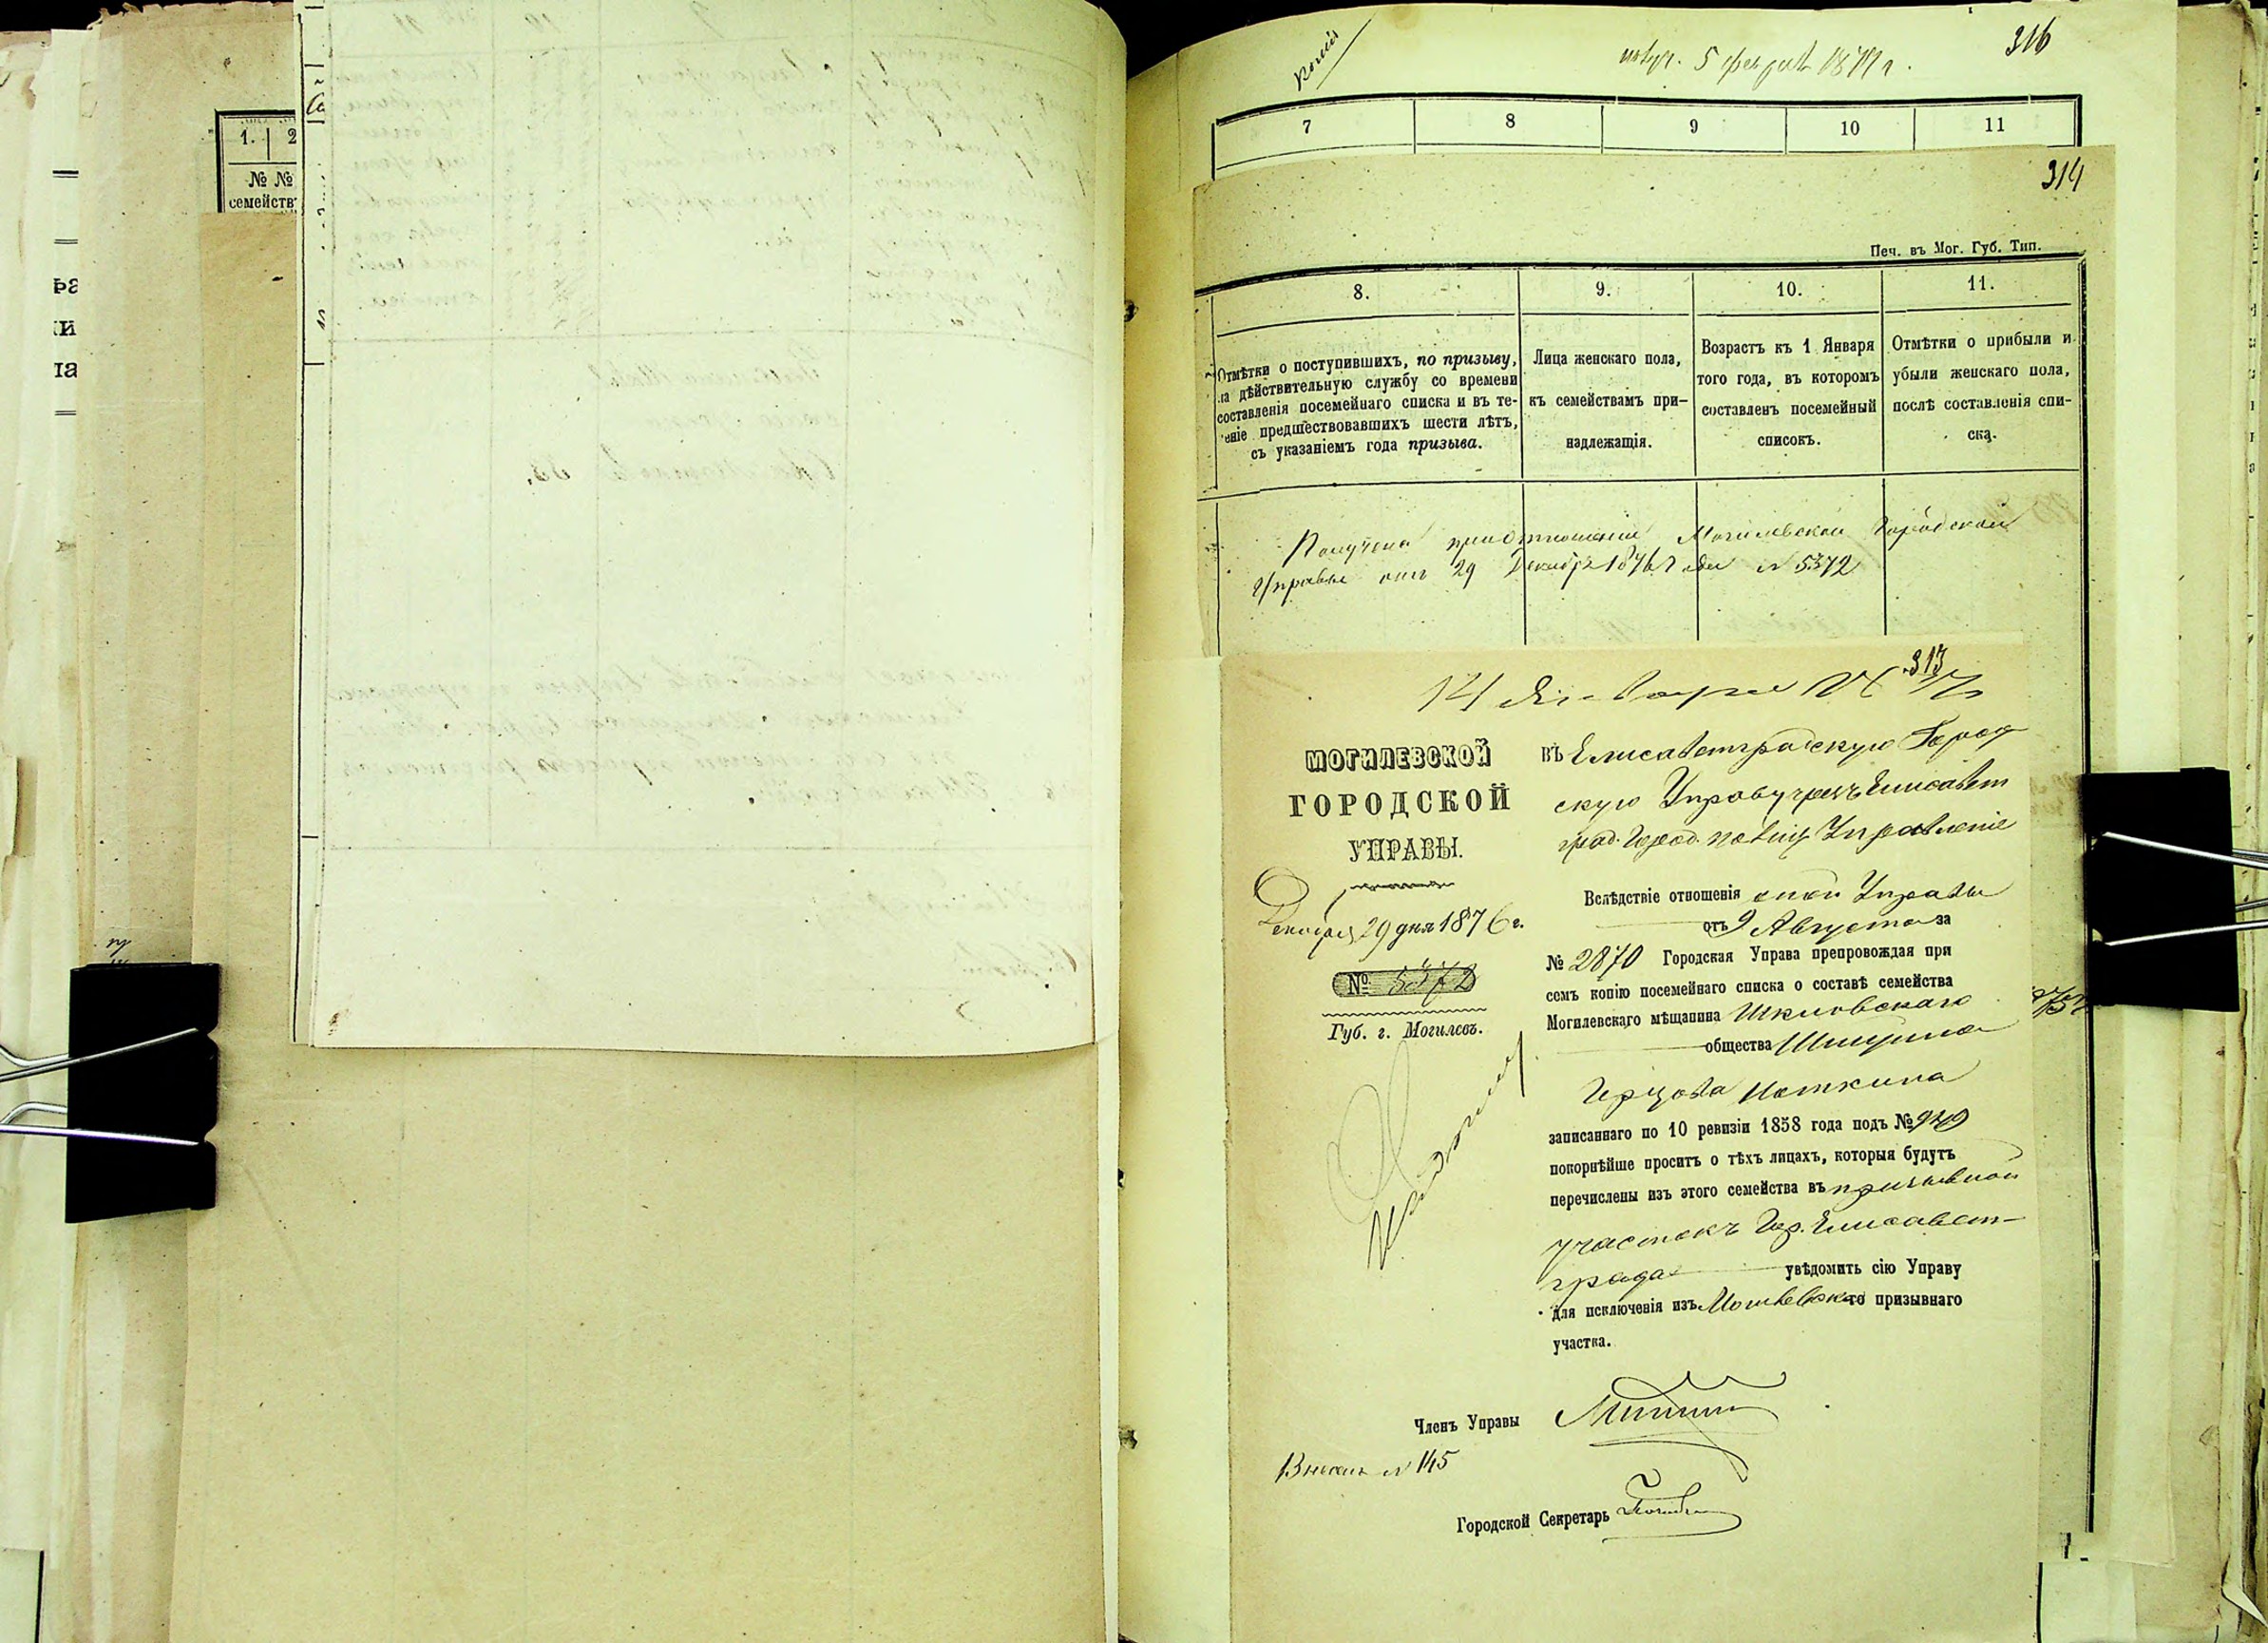 1. 2
№ №
семейств
ра
ки
ла
копія
получ. 5 февраля 1877 г.
316
7 8 9 10 11
314
Печ. въ Мог. Губ. Тип.
8. 9. 10. 11.
Отмѣтки о поступившихъ, по призыву,
на дѣйствительную службу со времени
составленія посемейнаго списка и въ те-
ченіе предшествовавшихъ шести лѣтъ,
съ указаніемъ года призыва.
Лица женскаго пола,
къ семействамъ при-
надлежащія.
Возрастъ къ 1 Января
того года, въ которомъ
составленъ посемейный
списокъ.
Отмѣтки о прибыли и
убыли женскаго пола,
послѣ составленія спи-
ска.
Получена при отношеніи Могилевской Городской
Управы отъ 29 Декабря 1876 года № 5372
313
14 Января
МОГИЛЕВСКОЙ
ГОРОДСКОЙ
УПРАВЫ.
Декабря 29 дня 1876 г.
№ 5372
Губ. г. Могилевъ.
въ Елисаветградскую Город
скую Управу чрезъ Елисавет
град. Город. Полиц. Управленіе
Вслѣдствіе отношенія оной Управы
отъ 9 Августа за
№ 2870 Городская Управа препровождая при
семъ копію посемейнаго списка о составѣ семейства
Могилевскаго мѣщанина Шкловскаго
общества Шмуила
Герцова Иоткина
записаннаго по 10 ревизіи 1858 года подъ № 940
покорнѣйше проситъ о тѣхъ лицахъ, которыя будутъ
перечислены изъ этого семейства въ призывной
участокъ Гор. Елисавет-
града увѣдомить сію Управу
для исключенія изъ Могилевскаго призывнаго
участка.
Членъ Управы
№ 145
Городской Секретарь